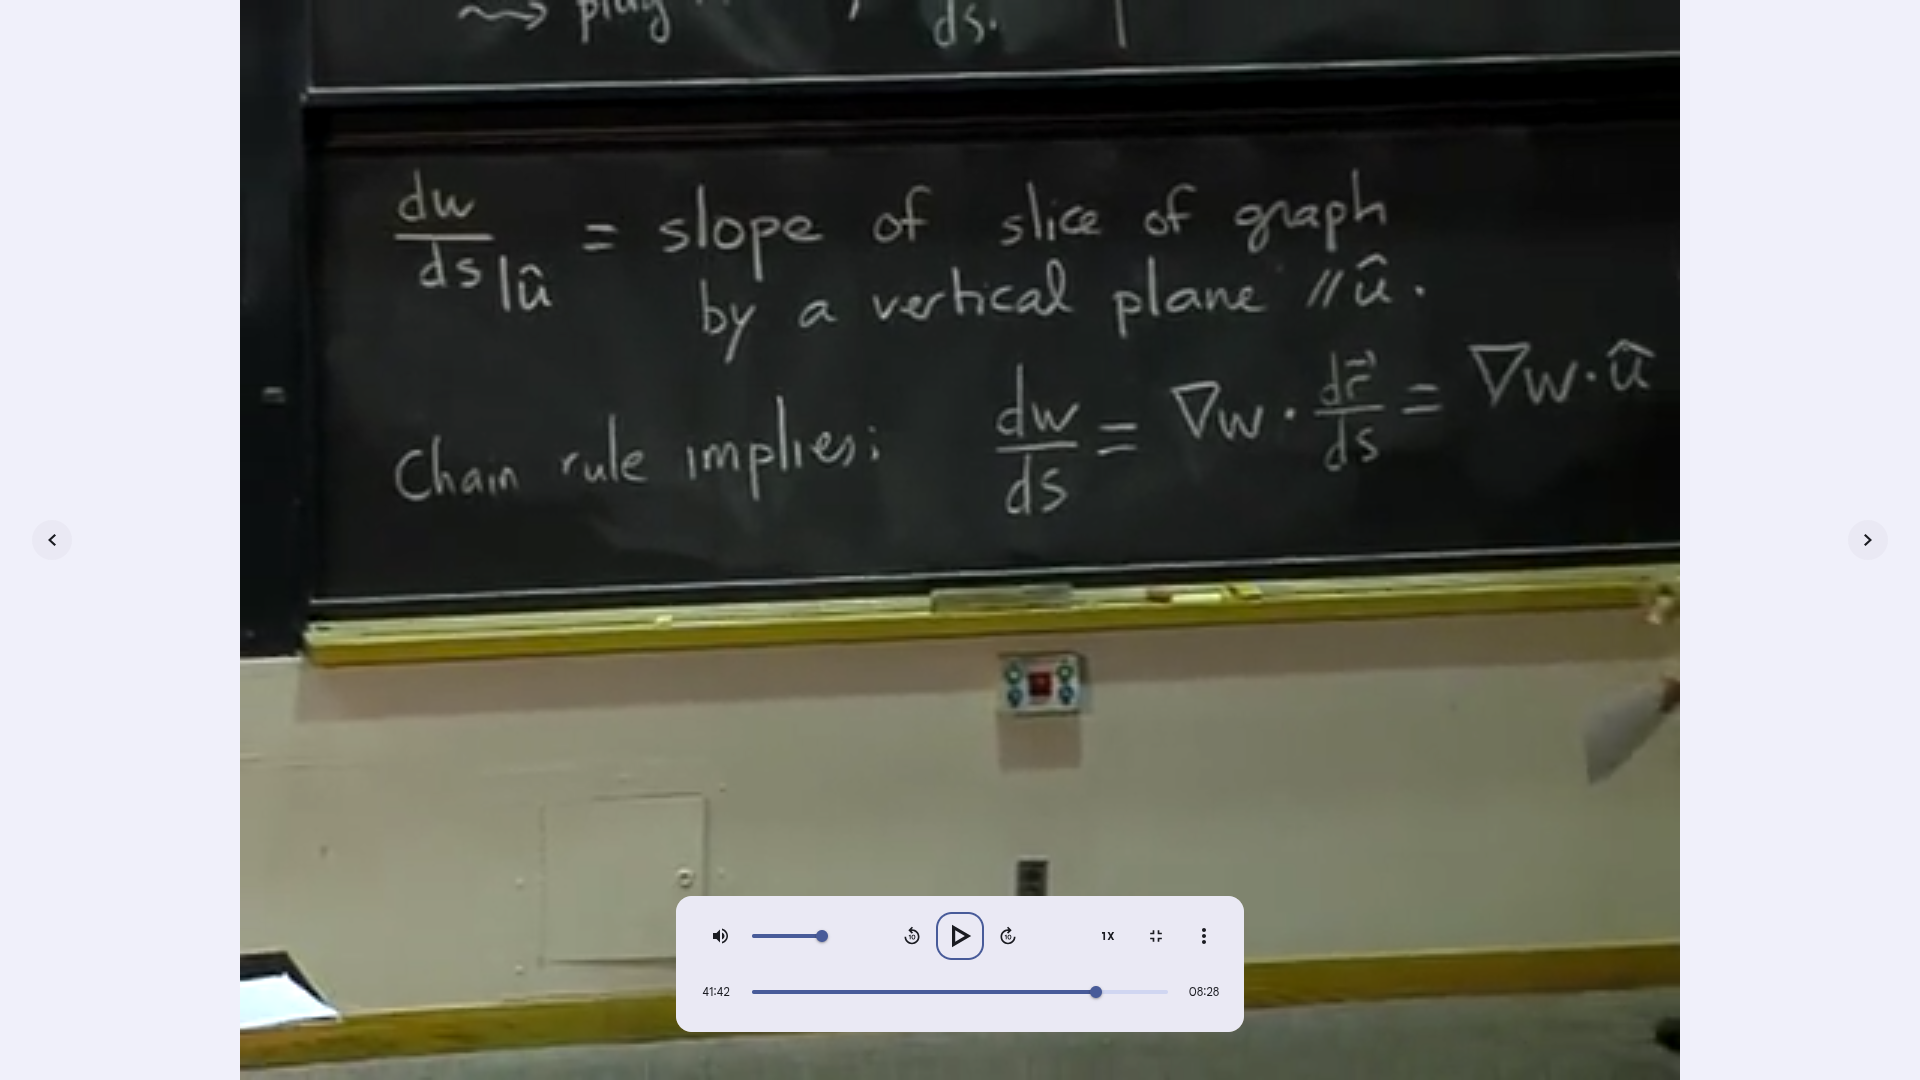 ⇝ plug ds.
dw/ds|û = slope of slice of graph
by a vertical plane // û.
Chain rule implies: dw/ds = ∇w · dr⃗/ds = ∇w · û
1X
41:42 08:28